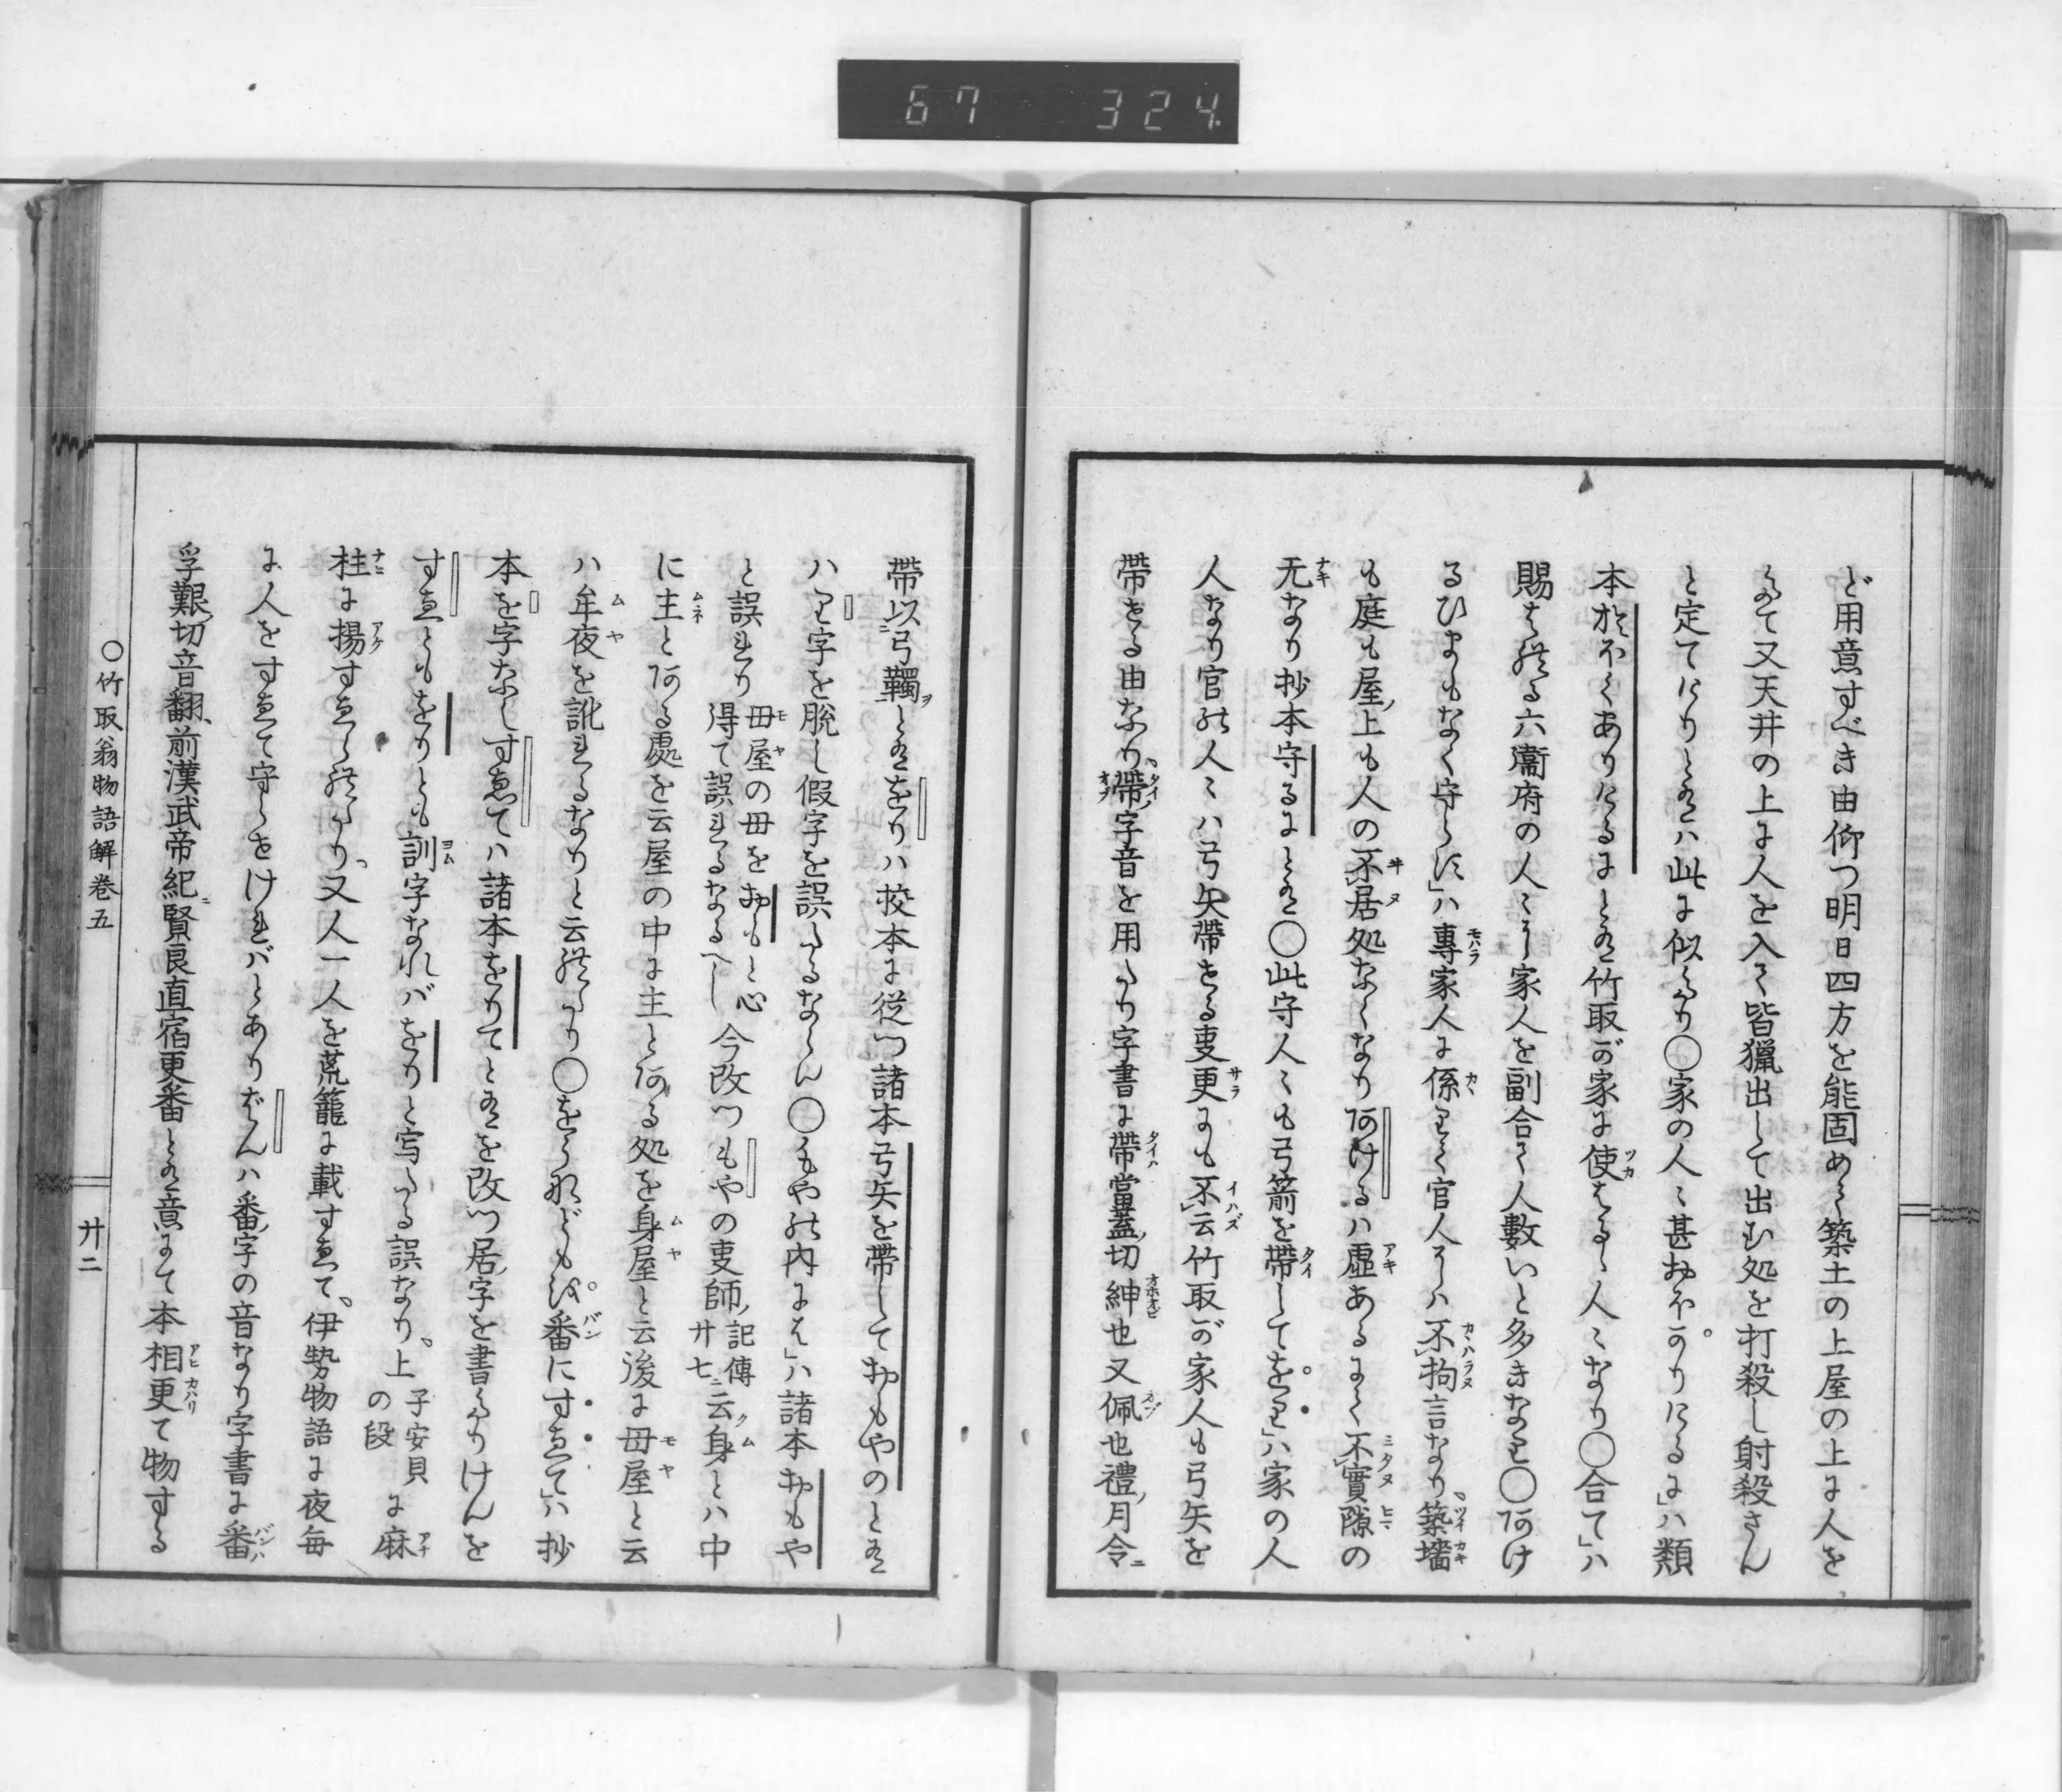 67 324
ど用意すべき由仰つ明日四方を能固めく築土の上屋の上に人を
みて又天井の上に人を入く皆獵出して出む処を打殺し射殺さん
と定てけりとあるハ此に似たり〇家の人〻甚おほかりけるに」ハ類
本おほくありけるにとある竹取が家に使はるゝ人〻なり〇合て」ハ
賜はれる六衞府の人〻に家人を副合く人數いと多きなり〇阿け
るひまもなく守らす」ハ專家人に係りく官人にハ不拘言なり築墻
も庭も屋ノ上も人の不居処なくなり阿けるハ虛あるにく不實隙の
无なり抄本守るにとある〇此守人〻も弓箭を帶してをり」ハ家の人
人なり官の人〻ハ弓矢帶せる叓更にも不云竹取が家人も弓矢を
帶せる由なり帶ノ字音を用たり字書に帶ハ當蓋ノ切紳也又佩也禮ノ月令ニ
帶以弓韣とあるをりハ挍本に從つ諸本弓矢を帶しておもやのとある
ハり字を脫し假字を誤たるならん〇もやの内には」ハ諸本おもや
と誤れり母屋の母をおもと心得て誤れるなるへし今改つもやの叓師ノ記傳廿七ニ云身とハ中
に主と阿る處を云屋の中に主と阿る処を身屋と云後に母屋と云
ハ牟夜を訛れるなりと云れたり〇をらねども」番にすゑて」ハ抄
本を字なしすゑてハ諸本をりてとあるを改つ居ノ字を書たりけんを
すゑともをりとも訓字なれバをりと写たる誤なり上子安貝の段に麻
柱に揚すゑられたり又人一人を荒籠に載すゑて伊勢物語に夜每
に人をすゑて守らせけれバとありばんハ番ノ字の音なり字書に番ハ
孚艱ノ切音翻前漢武帝紀ニ賢良直宿更番とある意にて本相更て物する
〇竹取翁物語解卷五
廿二